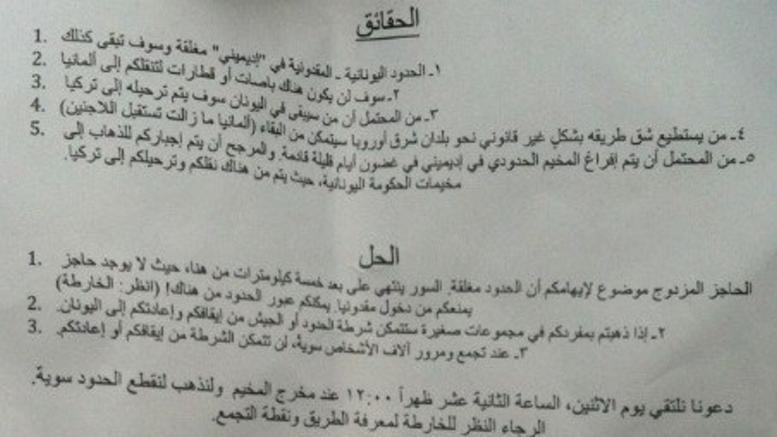 الحقائق
1. ١ـ الحدود اليونانية ـ المقدونية في "إديميني" مغلقة وسوف تبقى كذلك
2. ٢ـ سوف لن يكون هناك باصات أو قطارات لتنقلكم إلى ألمانيا
3. ٣ـ من المحتمل أن من سيبقى في اليونان سوف يتم ترحيله إلى تركيا
4. ٤ـ من يستطيع شق طريقه بشكلٍ غير قانوني نحو بلدان شرق أوروبا سيتمكن من البقاء (ألمانيا ما زالت تستقبل اللاجئين)
5. ٥ـ من المحتمل أن يتم إفراغ المخيم الحدودي في إديميني في غضون أيام قليلة قادمة. والمرجح أن يتم إجباركم للذهاب إلى
مخيمات الحكومة اليونانية، حيث يتم من هناك نقلكم وترحيلكم إلى تركيا.
الحل
1. الحاجز المزدوج موضوع لإيهامكم أن الحدود مغلقة. السور ينتهي على بعد خمسة كيلومترات من هنا، حيث لا يوجد حاجز
يمنعكم من دخول مقدونيا. يمكنكم عبور الحدود من هناك! (انظر: الخارطة)
2. ٢ـ إذا ذهبتم بمفردكم في مجموعات صغيرة ستتمكن شرطة الحدود أو الجيش من إيقافكم وإعادتكم إلى اليونان.
3. ٣ـ عند تجمع ومرور آلاف الأشخاص سوية، لن تتمكن الشرطة من إيقافكم أو إعادتكم.
دعونا نلتقي يوم الاثنين، الساعة الثانية عشر ظهراً ١٢:٠٠ عند مخرج المخيم ولنذهب لنقطع الحدود سوية.
الرجاء النظر للخارطة لمعرفة الطريق ونقطة التجمع.